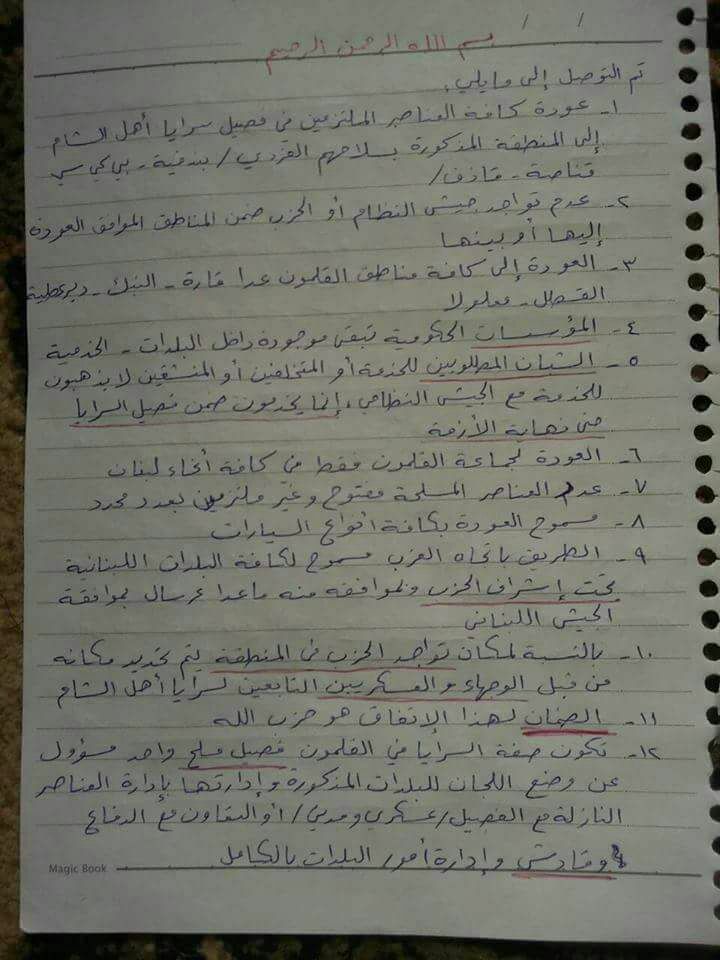 / /
بسم الله الرحمن الرحيم
تم التوصل إلى مايلي:
١- عودة كافة العناصر الملتزمين في فصيل سرايا أهل الشام
إلى المنطقة المذكورة بسلاحهم الفردي / بندقية - بي كي سي
قناصة - قاذف /
٢- عدم تواجد جيش النظام أو الحزب ضمن المناطق الموافق العودة
إليها أو بينها
٣- العودة إلى كافة مناطق القلمون عدا قارة - النبك - ديرعطية
القسطل - معلولا
٤- المؤسسات الحكومية تبقى موجودة داخل البلدات - الخدمية
٥- الشبان المطلوبين للخدمة أو المتخلفين أو المنشقين لا يذهبون
للخدمة مع الجيش النظامي، إنما يخدمون ضمن فصيل السرايا
حتى نهاية الأزمة
٦- العودة لجماعة القلمون فقط من كافة أنحاء لبنان
٧- عدد العناصر المسلحة مفتوح وغير ملتزمين بعدد محدد
٨- مسموح العودة بكافة أنواع السيارات
٩- الطريق باتجاه الغرب مسموح لكافة البلدات اللبنانية
تحت إشراف الحزب وبموافقة منه ماعدا عرسال بموافقة
الجيش اللبناني
١٠- بالنسبة لمكان تواجد الحزب في المنطقة يتم تحديد مكانه
من قبل الوجهاء والعسكريين التابعين لسرايا أهل الشام
١١- الضمان لهذا الإتفاق هو حزب الله
١٢- تكون صفة السرايا في القلمون فصيل مسلح واحد مسؤول
عن وضع اللجان للبلدات المذكورة وإدارتها بإدارة العناصر
النازلة مع الفصيل / عسكري ومدني / أو التعاون مع الدفاع
وإدارة أمور البلدات بالكامل
Magic Book